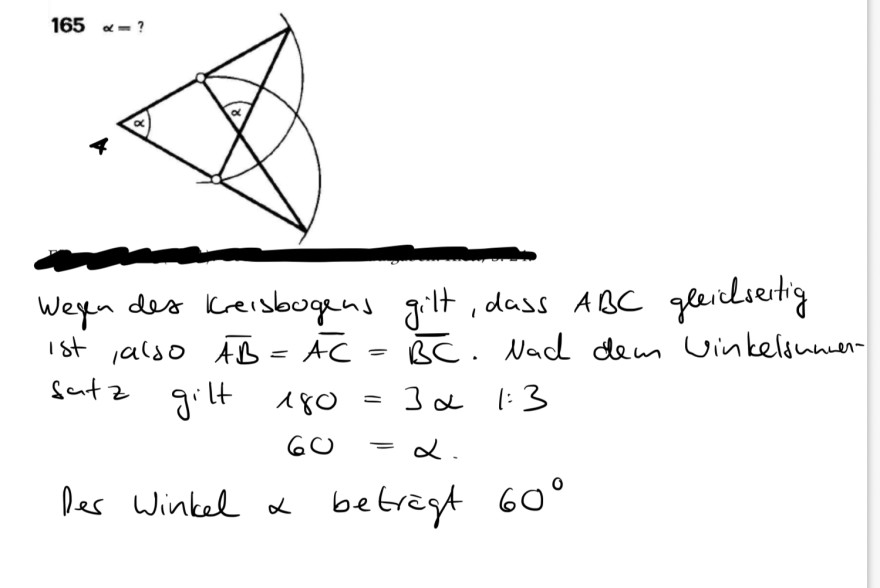 165 α = ?
α
α
A
Wegen des Kreisbogens gilt, dass ABC gleichseitig
ist, also A̅B̅ = A̅C̅ = B̅C̅. Nach dem Winkelsummen-
satz gilt 180 = 3α |:3
60 = α.
Der Winkel α beträgt 60°